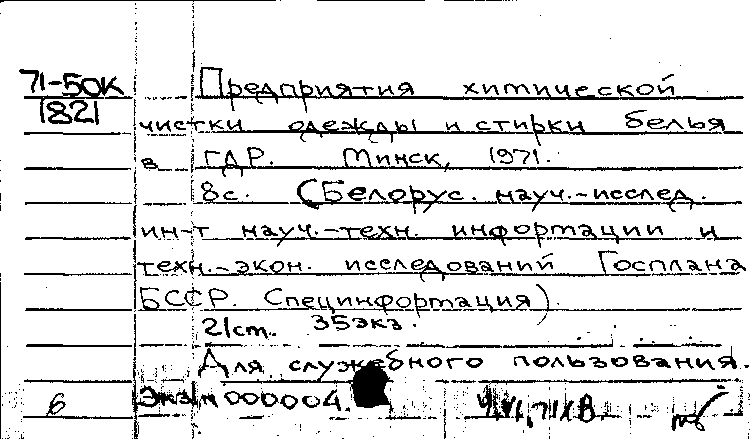 71-50К
1821
Предприятия химической
чистки одежды и стирки белья
в ГДР. Минск, 1971.
8с. (Белорус. науч.-исслед.
ин-т науч.-техн. информации и
техн.-экон. исследований Госплана
БССР. Специнформация).
21см. 35экз.
Для служебного пользования.
6 Экз N 000004.